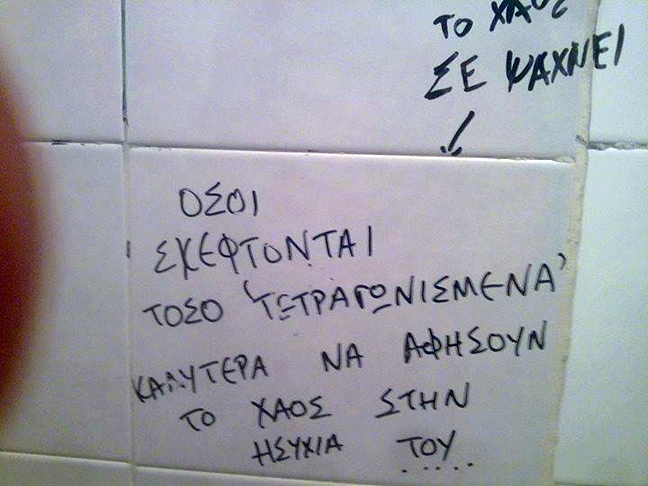 ΤΟ ΧΑΟΣ
ΣΕ ΨΑΧΝΕΙ
ΟΣΟΙ
ΣΚΕΦΤΟΝΤΑΙ
ΤΟΣΟ 'ΤΕΤΡΑΓΩΝΙΣΜΕΝΑ'
ΚΑΛΥΤΕΡΑ ΝΑ ΑΦΗΣΟΥΝ
ΤΟ ΧΑΟΣ ΣΤΗΝ
ΗΣΥΧΙΑ ΤΟΥ.....